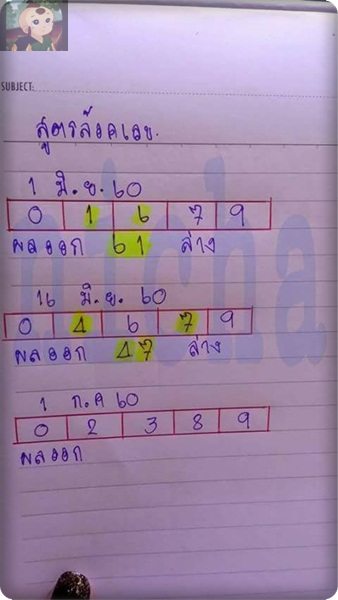 SUBJECT:
สูตรล้อคเลข.
1 มิ.ย. 60
0 1 6 7 9
ผลออก 61 ล่าง
16 มิ.ย. 60
0 4 6 7 9
ผลออก 47 ล่าง
1 ก.ค 60
0 2 3 8 9
ผลออก